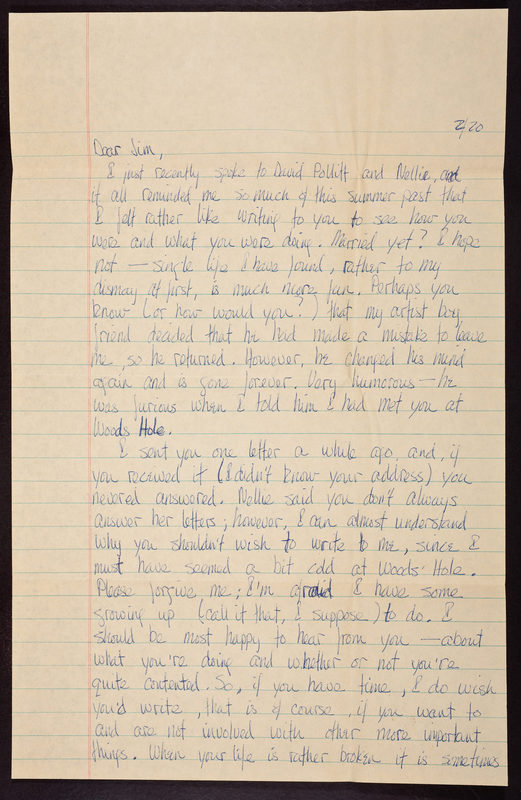 2/20
Dear Jim,
I just recently spoke to David Pollitt and Nellie, and
it all reminded me so much of this summer past that
I felt rather like writing to you to see how you
were and what you were doing. Married yet? I hope
not — single life I have found, rather to my
dismay at first, is much more fun. Perhaps you
know (or how would you?) that my artist boy
friend decided that he had made a mistake to leave
me, so he returned. However, he changed his mind
again and is gone forever. Very humorous — he
was furious when I told him I had met you at
Woods Hole.
I sent you one letter a while ago, and, if
you received it (I didn't know your address) you
nevered answered. Nellie said you don't always
answer her letters; however, I can almost understand
why you shouldn't wish to write to me, since I
must have seemed a bit cold at Woods Hole.
Please forgive me; I'm afraid I have some
growing up (call it that, I suppose) to do. I
should be most happy to hear from you — about
what you're doing and whether or not you're
quite contented. So, if you have time, I do wish
you'd write, that is of course, if you want to
and are not involved with other more important
things. When your life is rather broken it is sometimes